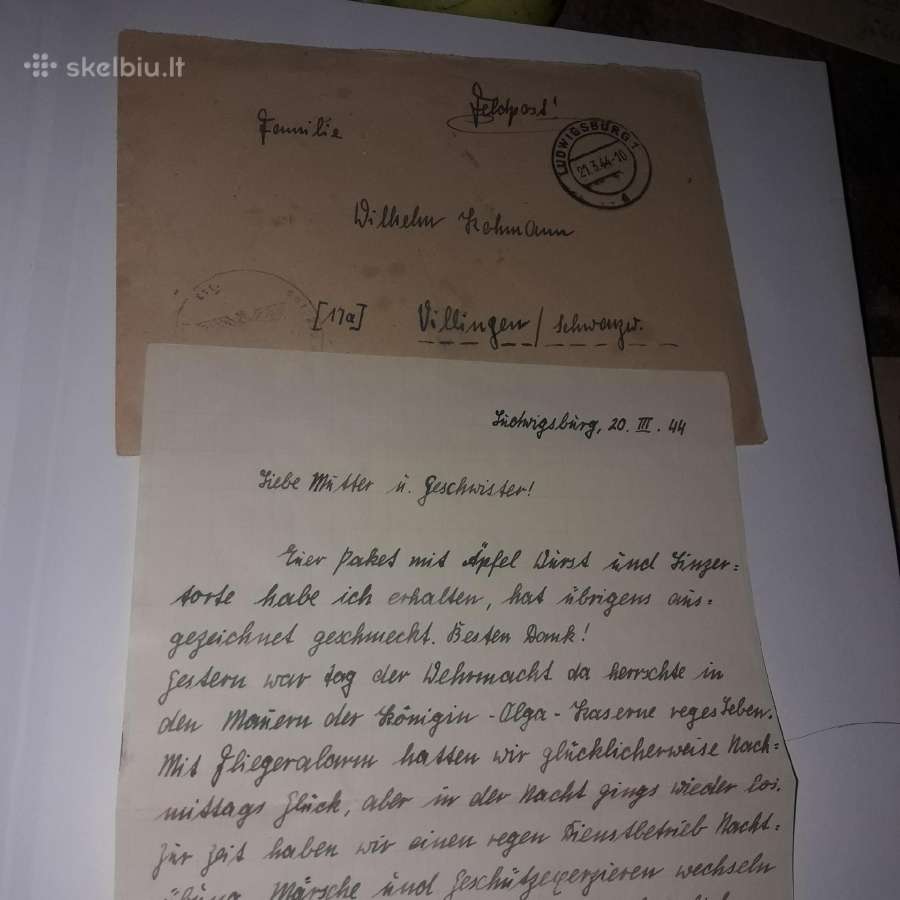 skelbiu.lt
Feldpost!
Familie
LUDWIGSBURG 1
21.3.44-10
d
Wilhelm Kohmann
[17a] Villingen / Schwarzw.
Ludwigsburg, 20. III. 44
Liebe Mutter u. Geschwister!
Euer Paket mit Äpfel Wurst und Linzer=
torte habe ich erhalten, hat übrigens aus=
gezeichnet geschmeckt. Besten Dank!
Gestern war tag der Wehrmacht da herrschte in
den Mauern der Königin-Olga-Kaserne reges Leben.
Mit Fliegeralarm hatten wir glücklicherweise Nach=
mittags Glück, aber in der Nacht gings wieder los.
Zur Zeit haben wir einen regen Dienstbetrieb Nacht=
übung Märsche und Geschützexerzieren wechseln